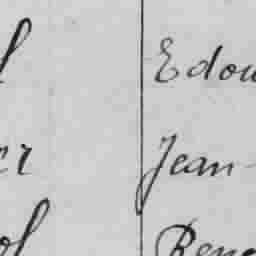 l Edou
er Jean-
ol Rene